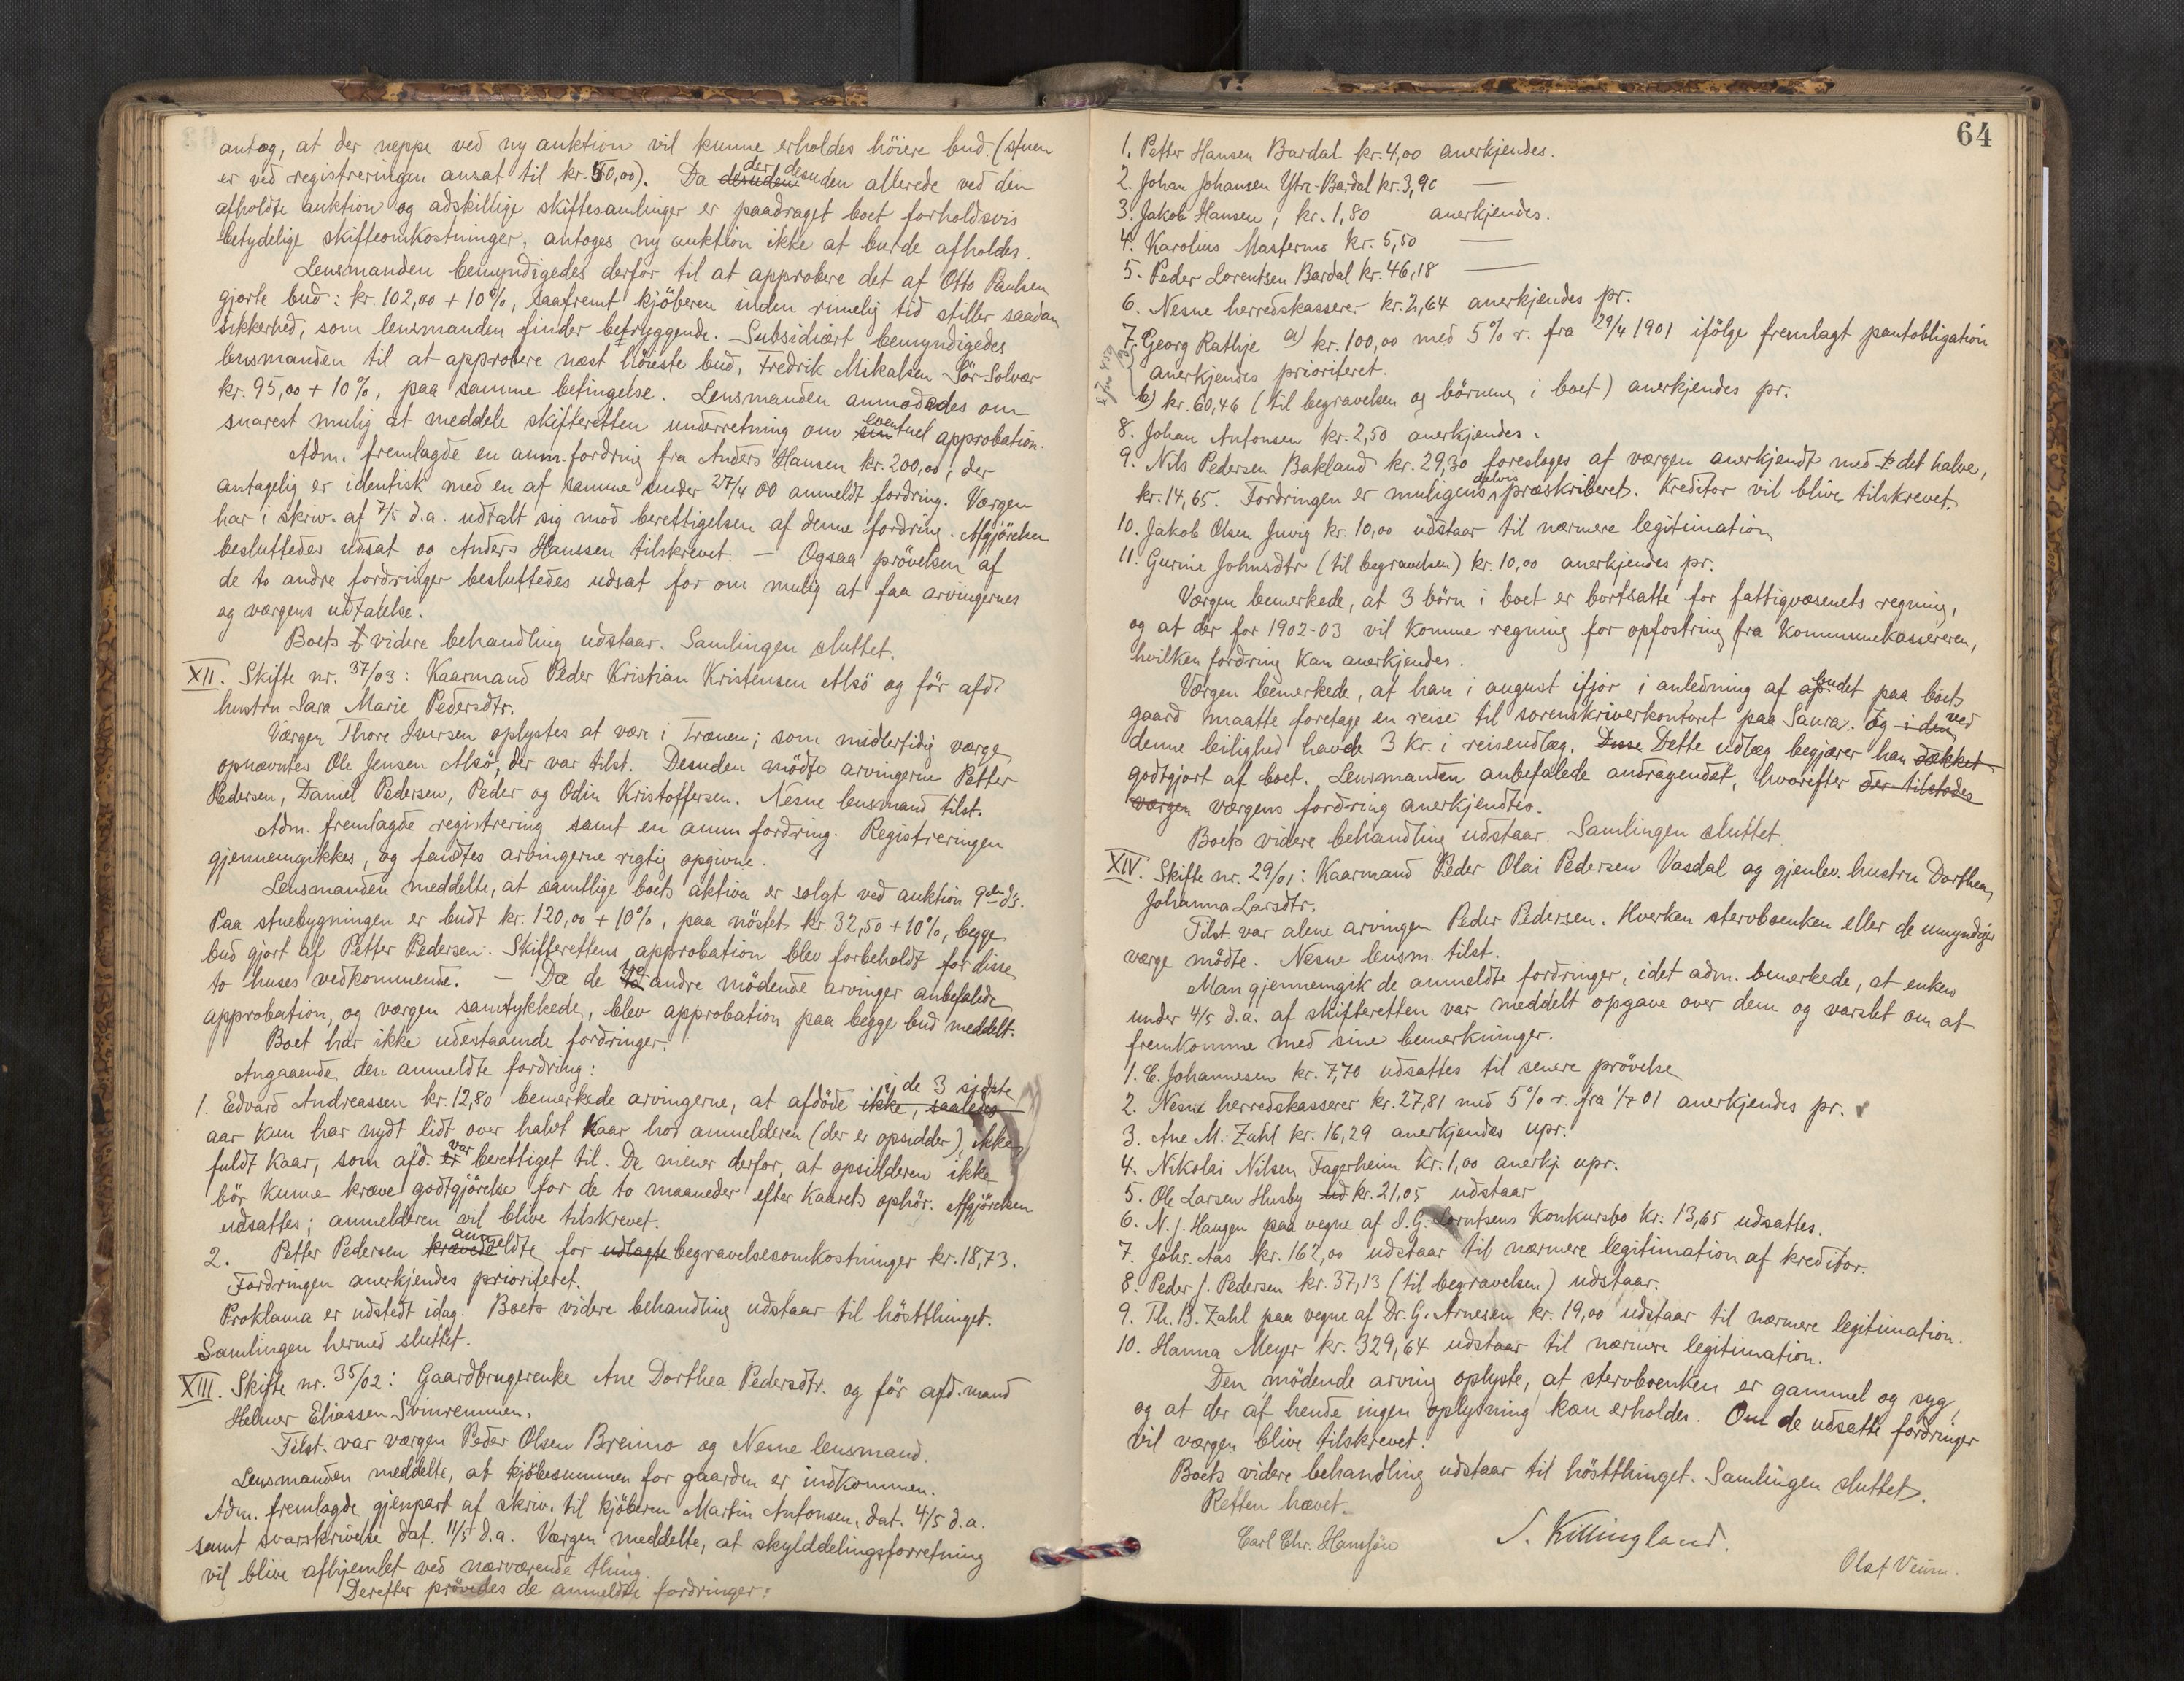 antog, at der neppe ved ny auktion vil kunne erholdes höiere bud. (stuen
er ved registreringen ansat til kr. 50,00). Da desuden der desuden allerede ved den
afholdte auktion og adskillige skiftesamlinger er paadraget boet forholdsvis
betydelige skifteomkostninger, antoges ny auktion ikke at burde afholdes.
Lensmanden bemyndigedes derfor til at approbere det af Otto Paulsen
gjorte bud: kr. 102,00 + 10%, saafremt kjöberen inden rimelig tid stiller saadan
sikkerhed, som lensmanden finder betryggende. Subsidiært bemyndigedes
lensmanden til at approbere næst höieste bud, Fredrik Mikalsen Sör-Solvær
kr. 95,00 + 10%, paa samme betingelse. Lensmanden anmodedes om
snarest mulig at meddele skifteretten underretning om sin eventuel approbation.
Adm. fremlagde en anm. fordring fra Anders Hansen kr. 200,00, der
antagelig er identisk med en af samme under 27/4 00 anmeldt fordring. Værgen
har i skriv. af 7/5 d.a. udtalt sig mod berettigelsen af denne fordring. Afgjörelsen
besluttedes udsat og Anders Hanssen tilskrevet. — Ogsaa prövelsen af
de to andre fordringer besluttedes udsat for om mulig at faa arvingernes
og værgens udtalelse.
Boets videre behandling udstaar. Samlingen sluttet.
XII. Skifte nr. 37/03: Kaarmand Peder Kristian Kristensen Alsö og för afd.
hustru Sara Marie Pedersdtr.
Værgen Thore Iversen oplystes at være i Trænen; som midlertidig værge
opnævntes Ole Jensen Alsö, der var tilst. Desuden mödte arvingerne Petter
Pedersen, Daniel Pedersen, Peder og Odin Kristoffersen. Nesne lensmand tilst.
Adm. fremlagde registrering samt en anm fordring. Registreringen
gjennemgikkes, og fandtes arvingerne rigtig opgivne.
Lensmanden meddelte, at samtlige boets aktiva er solgt ved auktion 9de ds.
Paa stuebygningen er budt kr. 120,00 + 10%, paa nöstet kr. 32,50 + 10%, begge
bud gjort af Petter Pedersen. Skifterettens approbation blev forbeholdt for disse
to huses vedkommende. — Da de to andre mödende arvinger anbefalede
approbation, og værgen samtykkede, blev approbation paa begge bud meddelt.
Boet har ikke udestaaende fordringer.
Angaaende den anmeldte fordring:
1. Edvard Andreassen kr. 12,80 bemerkede arvingerne, at afdöde ikke, saaledes i de 3 sidste
aar kun har nydt lidt over halvt kaar hos anmelderen (der er opsidder), ikke
fuldt kaar, som afd. er var berettiget til. De mener derfor, at opsidderen ikke
bör kunne kræve godtgjörelse for de to maaneder efter kaarets ophör. Afgjörelsen
udsattes; anmelderen vil blive tilskrevet.
2. Petter Pedersen krævede anmeldte for udlagte begravelsesomkostninger kr. 18,73.
Fordringen anerkjendes prioriteret.
Proklama er udstedt idag. Boets videre behandling udstaar til höstthinget.
Samlingen hermed sluttet.
XIII. Skifte nr. 35/02: Gaardbrugerenke Ane Dorthea Pedersdtr. og för afd. mand
Helmer Eliassen Svinremmen.
Tilst. var værgen Peder Olsen Breimo og Nesne lensmand.
Lensmanden meddelte, at kjöbesummen for gaarden er indkommen.
Adm. fremlagde gjenpart af skriv. til kjöberen Martin Antonsen, dat. 4/5 d.a.
samt svarskrivelse dat. 11/5 d.a. Værgen meddelte, at skylddelingsforretning
vil blive afhjemlet ved nærværende thing.
Derefter prövedes de anmeldte fordringer:
64
1. Petter Hansen Bardal kr. 4,00 anerkjendes.
2. Johan Johansen Ytre-Bardal kr. 3,90 —
3. Jakob Hansen, kr. 1,80 anerkjendes.
4. Karolius kr. 5,50 —
5. Peder Lorentsen Bardal kr. 46,18 —
6. Nesne herredskasserer kr. 2,64 anerkjendes pr.
7. Georg Rathje a) kr. 100,00 med 5% r. fra 29/4 1901 ifölge fremlagt pantobligation
anerkjendes prioriteret.
b) kr. 60,46 (til begravelsen og börnene i boet) anerkjendes pr.
8. Johan Antonsen kr. 2,50 anerkjendes.
9. Nils Pedersen Bakland kr. 29,30 foresloges af værgen anerkjendt med det halve,
kr. 14,65. Fordringen er muligens delvis præskriberet. Kreditor vil blive tilskrevet.
10. Jakob Olsen Juvig kr. 10,00 udstaar til nærmere legitimation
11. Gurine Johnsdtr (til begravelsen) kr. 10,00 anerkjendes pr.
Værgen bemerkede, at 3 börn i boet er bortsatte for fattigvæsenets regning,
og at der for 1902-03 vil komme regning for opfostring fra kommunekassereren,
hvilken fordring kan anerkjendes.
Værgen bemerkede, at han i august ifjor i anledning af budet paa boets
gaard maatte foretage en reise til sorenskriverkontoret paa Saura. Og i den ved
denne leilighed havde 3 kr. i reiseudlæg. Disse Dette udlæg begjærer han dækket
godtgjort af boet. Lensmanden anbefalede andragendet, hvorefter der tilstodes
værgen værgens fordring anerkjendtes.
Boets videre behandling udstaar. Samlingen sluttet
XIV. Skifte nr. 29/01: Kaarmand Peder Olai Pedersen Vasdal og gjenlev. hustru Dorthea
Johanna Larsdtr.
Tilst. var alene arvingen Peder Pedersen. Hverken stervboenken eller de umyndiges
værge mödte. Nesne lensm. tilst.
Man gjennemgik de anmeldte fordringer, idet adm. bemerkede, at enken
under 4/5 d.a. af skifteretten var meddelt opgave over dem og varslet om at
fremkomme med sine bemerkninger.
1. E. Johannesen kr. 7,70 udsattes til senere prövelse
2. Nesne herredskasserer kr. 27,81 med 5% r. fra 1/7 01 anerkjendes pr.
3. Ane M. Zahl kr. 16,29 anerkjendes upr.
4. Nikolai Nilsen Fagerheim kr. 1,00 anerkj. upr.
5. Ole Larsen Husby ud kr. 21,05 udstaar
6. N. J. Haugen paa vegne af S. G. Lorntsens konkursbo kr. 13,65 udsattes.
7. Johs. Aas kr. 162,00 udstaar til nærmere legitimation af kreditor.
8. Peder J. Pedersen kr. 37,13 (til begravelsen) udstaar.
9. Th. B. Zahl paa vegne af Dr. G. Arnesen kr. 19,00 udstaar til nærmere legitimation.
10. Hanna Meyer kr. 329,64 udstaar til nærmere legitimation.
Den mödende arving oplyste, at stervboenken er gammel og syg,
og at der af hende ingen oplysning kan erholdes. Om de udsatte fordringer
vil værgen blive tilskrevet.
Boets videre behandling udstaar til höstthinget. Samlingen sluttet.
Retten hævet.
Carl Chr. Hanssön S. Killingland.
Olaf Veum.